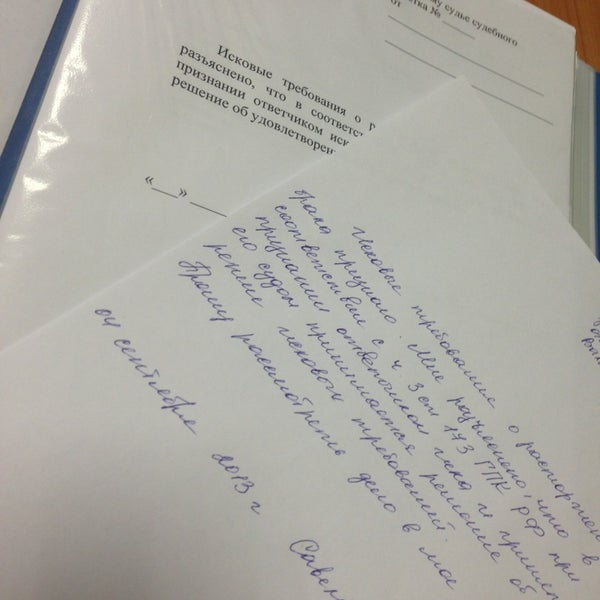 му судье судебного
тка № ____
от
Исковые требования о р
разъяснено, что в соответст
признании ответчиком иск
решение об удовлетворен
«___» ____
Исковые требования о расторжен
брака признаю. Мне разъяснено, что в
соответствии с ч. 3 ст 173 ГПК РФ при
признании ответчиком иска и принят
его судом принимается решение об
исковых требований.
Прошу рассмотреть дело в мое
04 сентября 2013 г
Савен